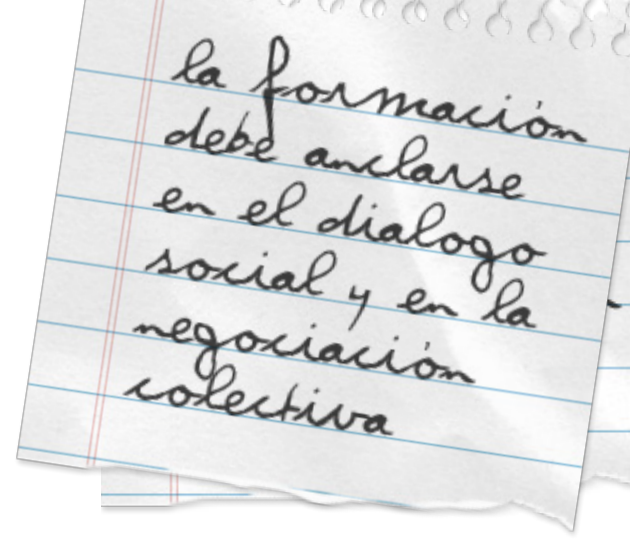 la formación
debe anclarse
en el dialogo
social y en la
negociación
colectiva